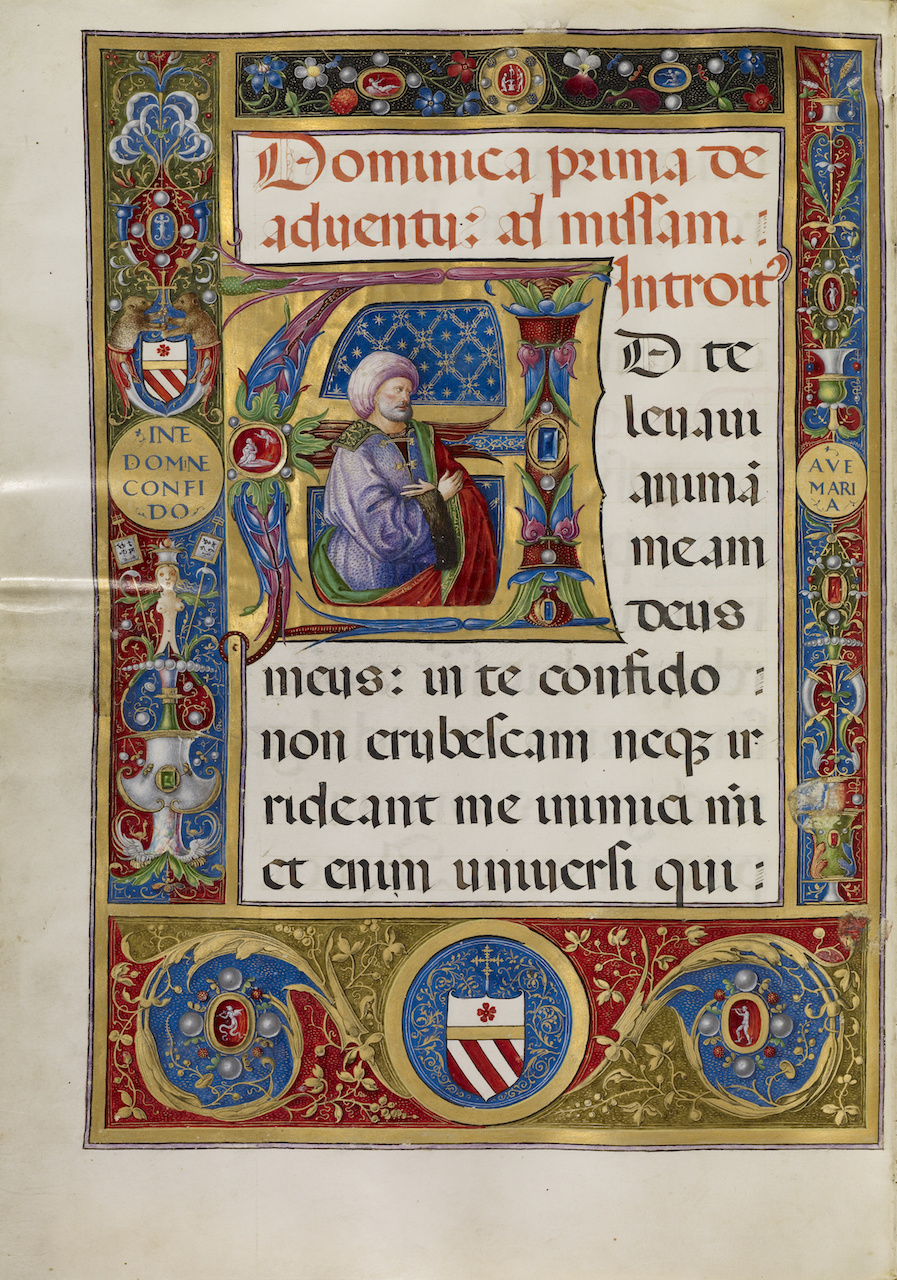 Dominica prima de
aduentu: ad missam.
Introit⁹
AD te
leuaui
animā
meam
deus
meus: in te confido
non erubescam neqꝫ ir
rideant me inimici mi
et enim uniuersi qui:
IN TE
DOMINE
CONFI
DO
AVE
MARI
A